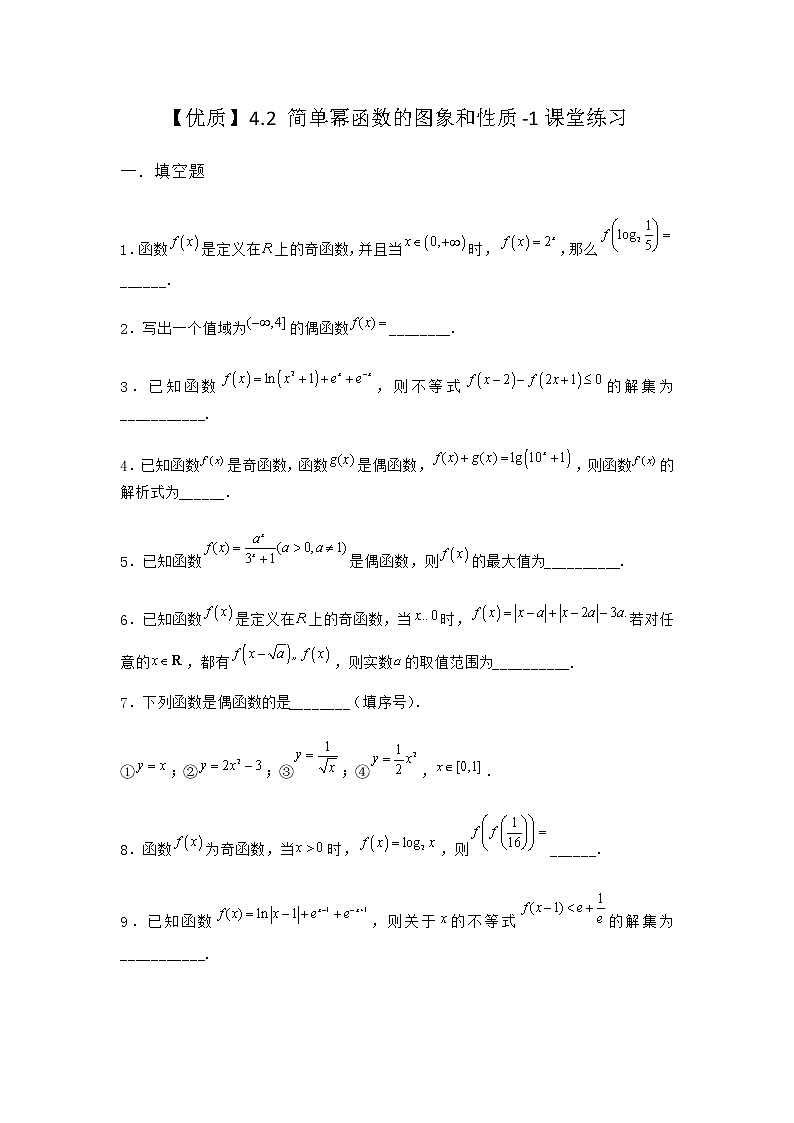 【优质】4.2 简单幂函数的图象和性质-1课堂练习
一．填空题
1.函数f(x)是定义在R上的奇函数,并且当x∈(0,+∞)时， f(x)=2^x ,那么 f(log₂ 1/5)=
______.
2．写出一个值域为(−∞,4]的偶函数f(x)=________．
3．已知函数 f(x)=ln(x²+1)+e^x+e^{-x} ，则不等式 f(x−2)−f(2x+1)≤0 的解集为
___________.
4.已知函数f(x)是奇函数,函数g(x)是偶函数，f(x)+g(x)=lg(10^x+1) ,则函数f(x)的
解析式为______.
5．已知函数 f(x)=a^x/(3^x+1)(a>0,a≠1) 是偶函数，则f(x)的最大值为__________.
6．已知函数f(x)是定义在R上的奇函数，当x..0时，f(x)=|x−a|+|x−2a|−3a.若对任
意的x∈R，都有f(x−√a)„ f(x)，则实数a的取值范围为__________.
7．下列函数是偶函数的是________（填序号）．
①y=x；②y=2x²−3；③y=1/√x；④y=1/2x²，x∈[0,1]．
8．函数f(x)为奇函数，当x>0时，f(x)=log₂x，则f(f(1/16))=______．
9．已知函数 f(x)=ln|x−1|+e^{x−1}+e^{−x+1}，则关于x的不等式 f(x−1)<e+1/e 的解集为
___________.